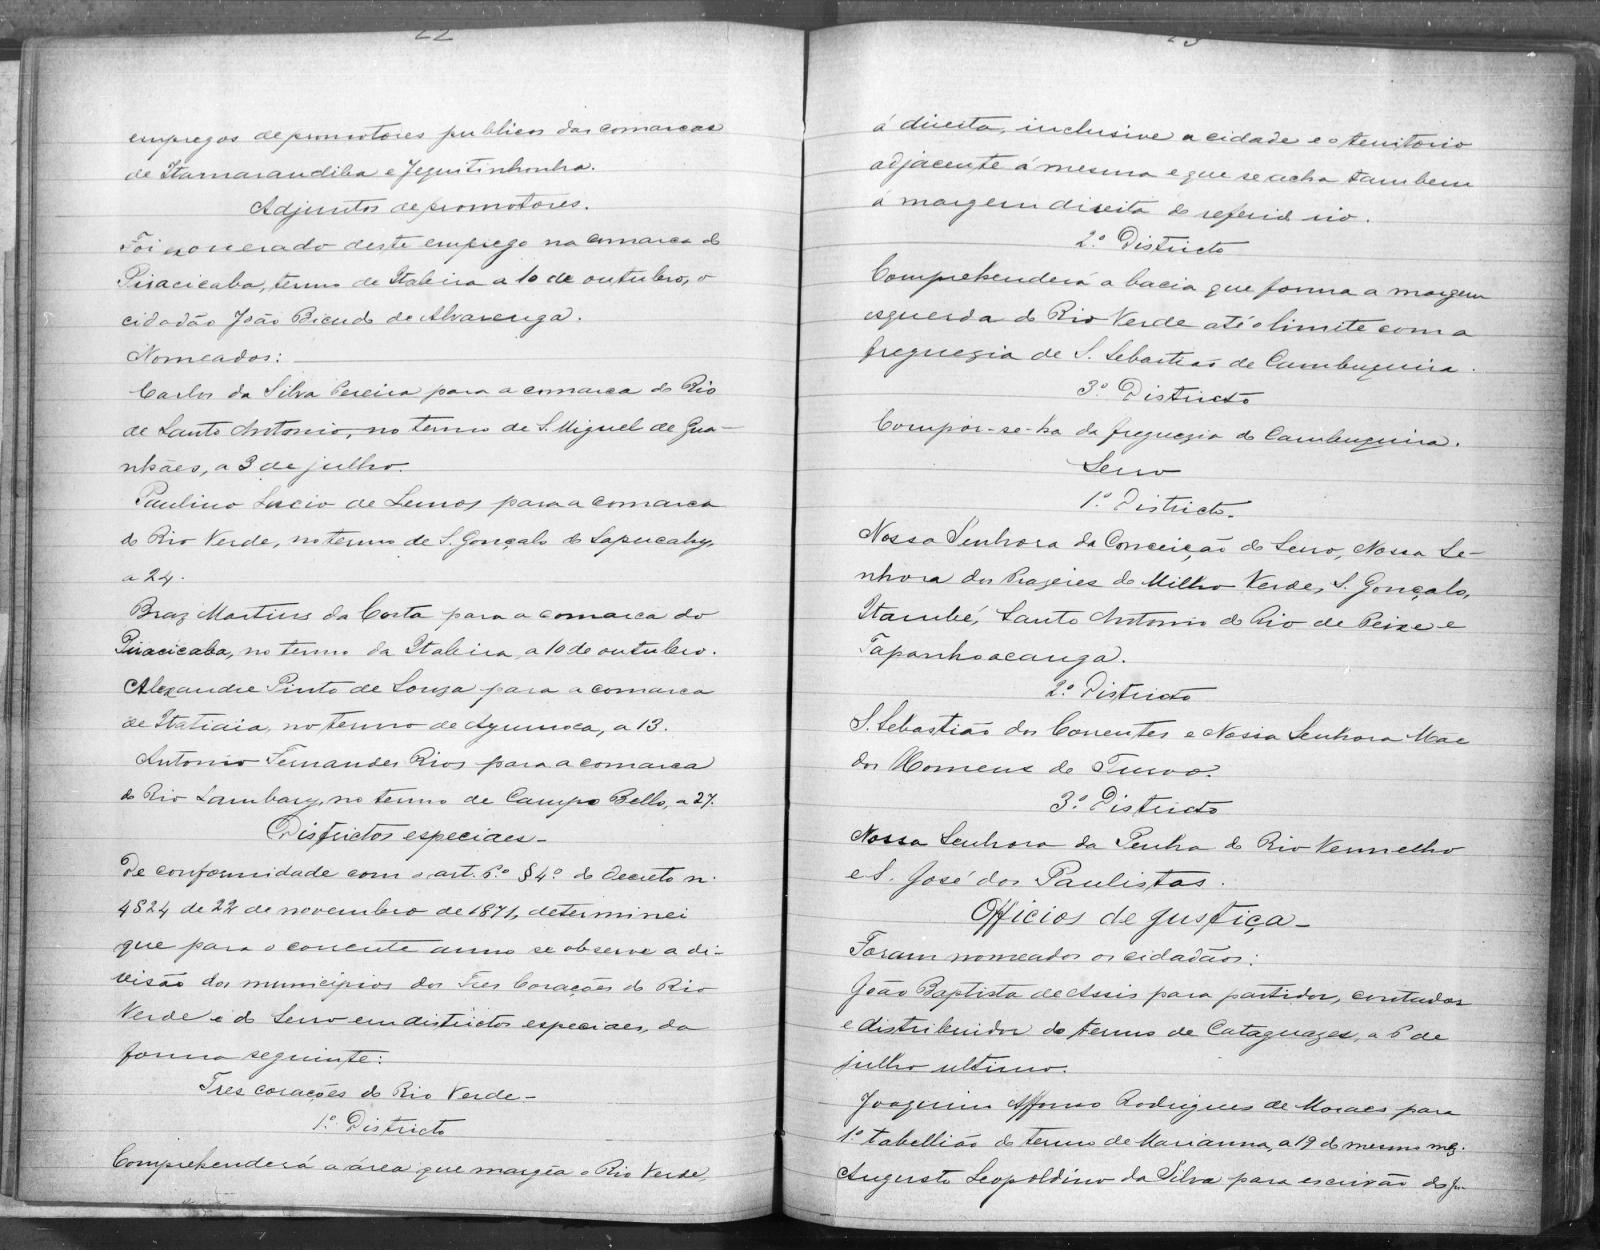 22
empregos de promotores publicos das comarcas
de Itamarandiba e Jequitinhonha.
Adjuntos de promotores.
Foi exonerado deste emprego na comarca do
Piracicaba, termo de Itabira a 10 de outubro, o
cidadão João Bicudo de Alvarenga.
Nomeados:
Carlos da Silva Pereira para a comarca do Rio
de Santo Antonio, no termo de S. Miguel de Gua-
nhães, a 3 de julho.
Paulino Lucio de Lemos para a comarca
do Rio Verde, no termo de S. Gonçalo do Sapucahy,
a 24.
Braz Martins da Costa para a comarca do
Piracicaba, no termo da Itabira, a 10 de outubro.
Alexandre Pinto de Souza para a comarca
de Itatiaia, no termo de Ayuruoca, a 13.
Antonio Fernandes Rios para a comarca
do Rio Lambary, no termo de Campo Bello, a 27.
Districtos especiaes-
De conformidade com o art. 6.º § 4.º do Decreto n.
4824 de 22 de novembro de 1871, determinei
que para o corrente anno se observe a di-
visão dos municipios dos Tres Corações do Rio
Verde e do Serro em districtos especiaes, da
forma seguinte:
Tres corações do Rio Verde.-
1.º Districto
Comprehenderá a área que margêa o Rio Verde,
23
á direita, inclusive a cidade e o territorio
adjacente á mesma e que se acha tambem
á margem direita do referido rio.
2.º Districto
Comprehenderá a bacia que forma a margem
esquerda do Rio Verde até o limite com a
freguezia de S. Sebastião de Cambuquira.
3.º Districto
Compôr-se-ha da freguezia do Cambuquira.
Serro
1.º Districto.
Nossa Senhora da Conceição do Serro, Nossa Se-
nhora dos Prazeres do Milho Verde, S. Gonçalo,
Itambé, Santo Antonio do Rio de Peixe e
Tapanhoacanga.
2.º Districto
S. Sebastião dos Correntes e Nossa Senhora Mae
dos Homens do Turvo.
3.º Districto
Nossa Senhora da Penha do Rio Vermelho
e S. José dos Paulistas.
Officios de justiça-
Foram nomeados os cidadãos:
João Baptista de Assis para partidor, contador
e distribuidor do termo de Cataguazes, a 6 de
julho ultimo.
Joaquim Affonso Rodrigues de Moraes para
1.º tabellião do termo de Marianna, a 19 do mesmo mez.
Augusto Leopoldino da Silva para escrivão do ju-